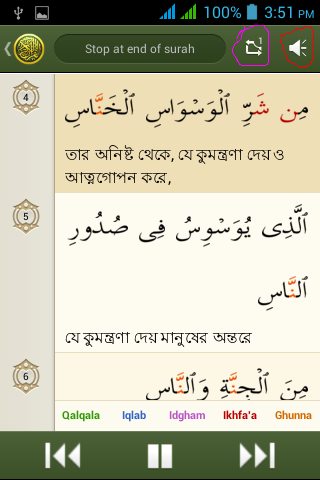 100% 3:51 PM
Stop at end of surah
1
4
مِن شَرِّ ٱلْوَسْوَاسِ ٱلْخَنَّاسِ
তার অনিষ্ট থেকে, যে কুমন্ত্রণা দেয় ও
আত্নগোপন করে,
5
ٱلَّذِى يُوَسْوِسُ فِى صُدُورِ
ٱلنَّاسِ
যে কুমন্ত্রণা দেয় মানুষের অন্তরে
6
مِنَ ٱلْجِنَّةِ وَٱلنَّاسِ
Qalqala Iqlab Idgham Ikhfa'a Ghunna